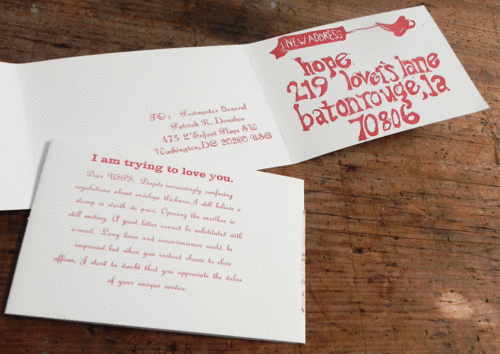 NEW ADDRESS
hope
219 lover's lane
baton rouge, la
70806
TO: Postmaster General
Patrick R. Donahoe
475 L'Enfant Plaza SW
Washington, DC 20260 USA
I am trying to love you.
Dear USPS, Despite increasingly confusing
regulations about envelope thickness, I still believe a
stamp is worth its price. Opening the mailbox is
still exciting. A good letter cannot be substituted with
e-mail. Long lines and inconveniences could be
improved, but when you instead choose to close
offices, I start to doubt that you appreciate the value
of your unique service.